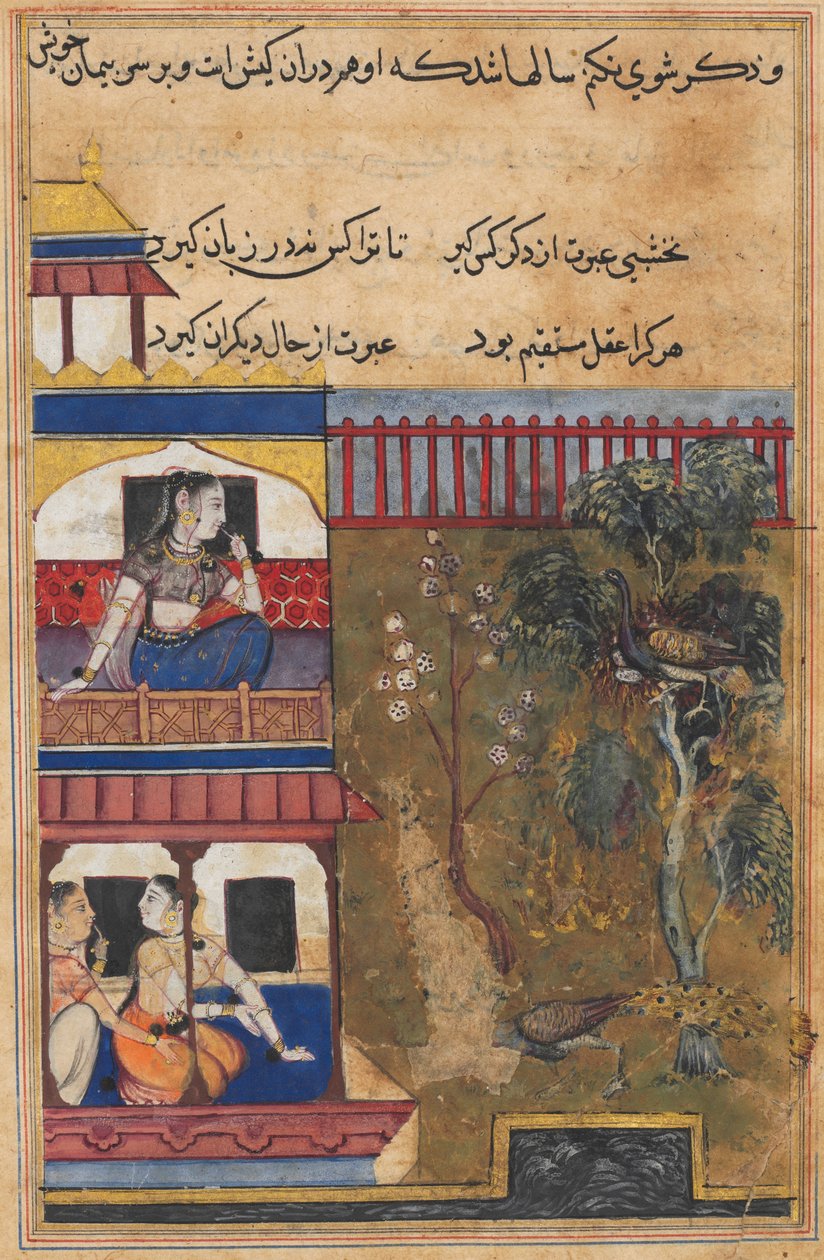 و ذکر شوي نکنم سالها شد که او هم در ان کیش است و بر سی پیمان خویش
نخشبی عبرت از دکر کس کیر تا ترا کس نه در زبان کیرد
هر کرا عقل مستقیم بود عبرت از حال دیکران کیرد